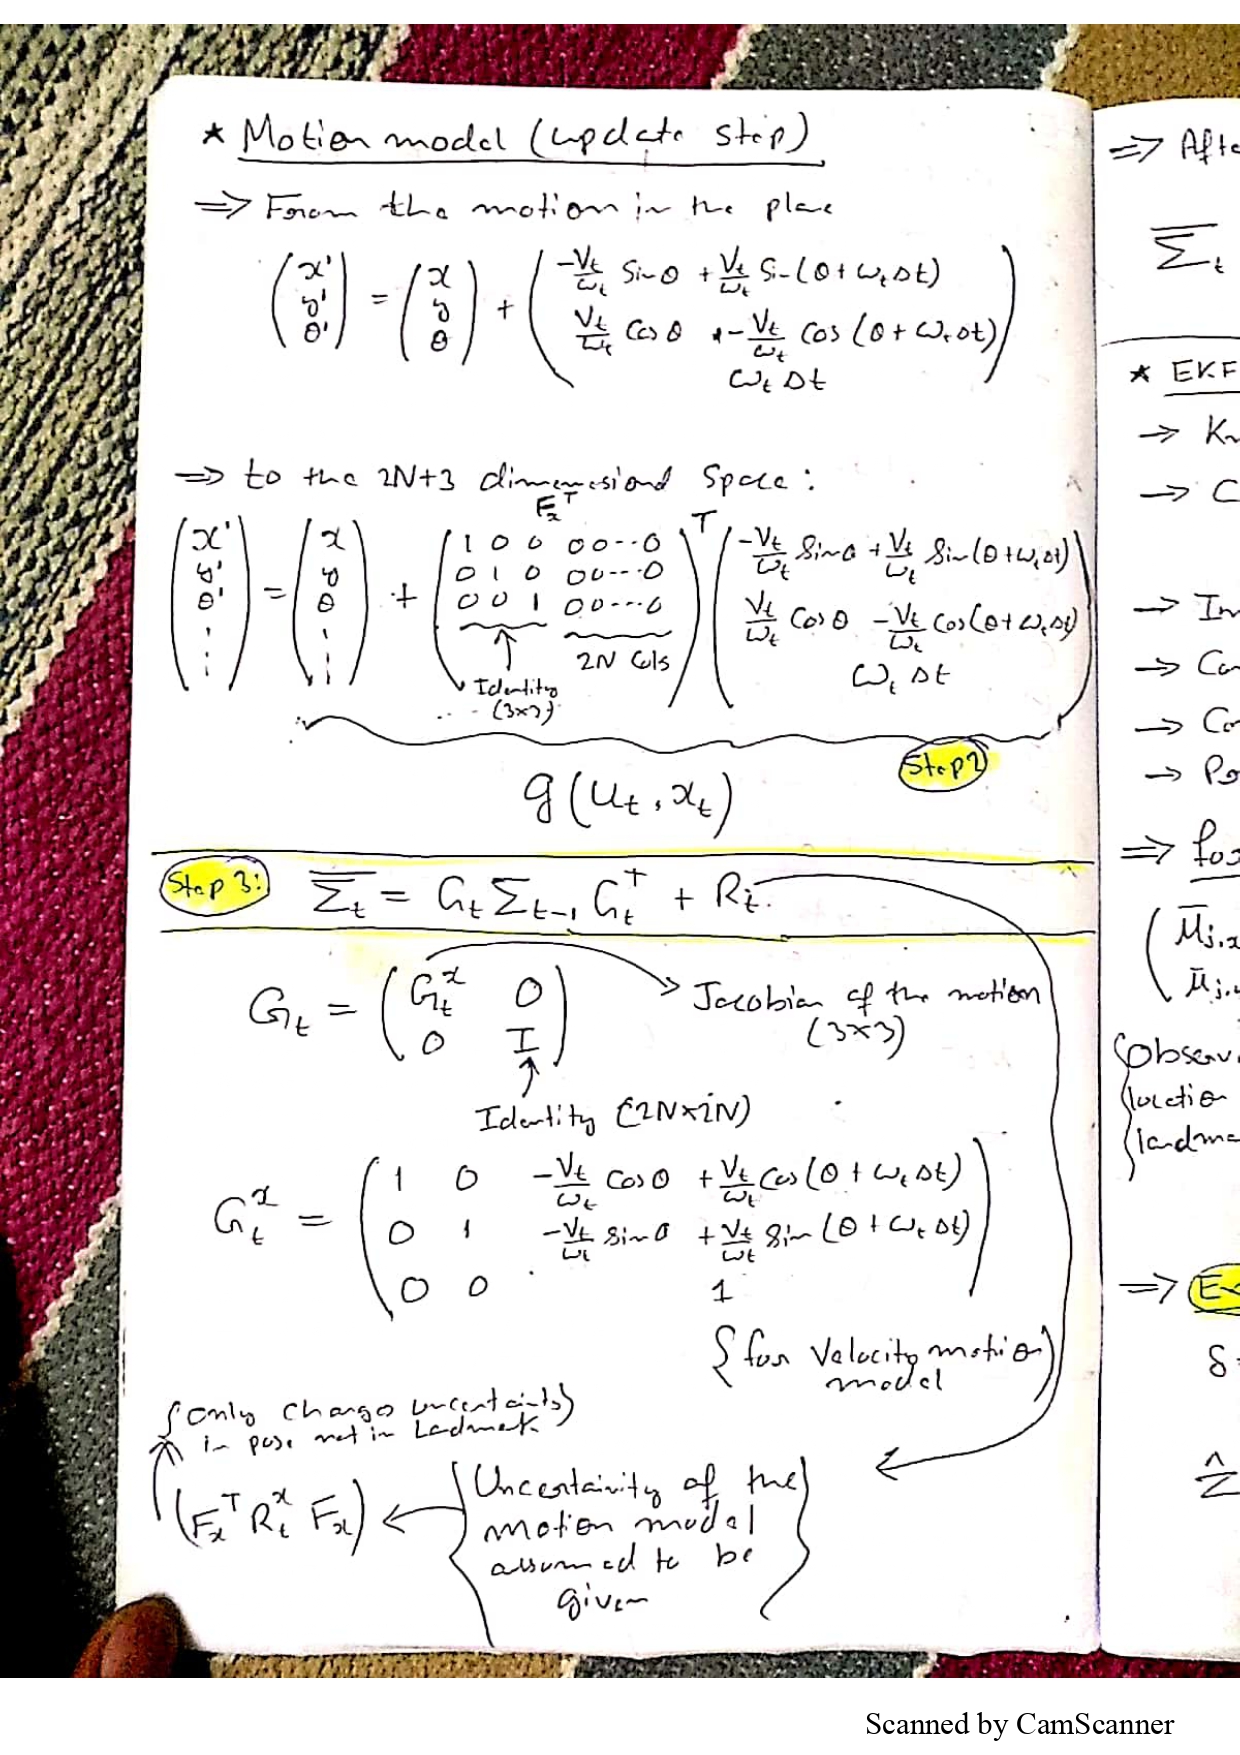 * Motion model (update step)
⇒ From the motion in the plane
(x' y' θ') = (x y θ) + ( -Vt/ωt Sin θ + Vt/ωt Sin(θ + ωt Δt)
Vt/ωt Cos θ - Vt/ωt Cos (θ + ωt Δt)
ωt Δt )
⇒ to the 2N+3 dimensional Space :
Fx^T
(x' y' θ' ⋮) = (x y θ ⋮) + ( 1 0 0 0 0 ... 0
0 1 0 0 0 ... 0
0 0 1 0 0 ... 0 )^T ( -Vt/ωt Sin θ + Vt/ωt Sin(θ + ωt Δt)
Vt/ωt Cos θ - Vt/ωt Cos(θ + ωt Δt)
ωt Δt )
2N Cols
Identity
(3×3)
Step 2
g (ut, xt)
Step 3: Σ̅t = Gt Σt-1 Gt^T + Rt
Gt = ( Gt^x 0
0 I )
Jacobian of the motion
(3×3)
Identity (2N×2N)
Gt^x = ( 1 0 -Vt/ωt Cos θ + Vt/ωt Cos(θ + ωt Δt)
0 1 -Vt/ωt Sin θ + Vt/ωt Sin (θ + ωt Δt)
0 0 1 )
{for Velocity motion
model
{only change uncertainty}
in pose not in Ladmark
(Fx^T Rt^x Fx) ← {Uncertainity of the
motion model
assumed to be
given}
⇒ Afte
Σ̅t
* EKF
→ Kn
→ C
→ In
→ Co
→ Co
→ Po
⇒ for
( μ̅j,x
μ̅j,y
{Observ
location
landma
⇒
δ =
ẑ
Scanned by CamScanner